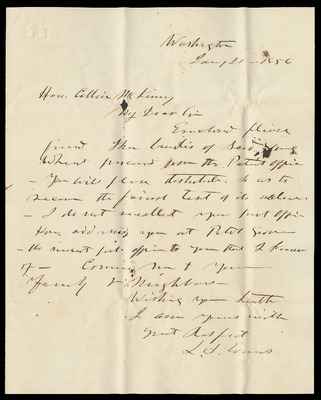 Washington
Jany 21 - 1856
Hon. Collin McKinney
My Dear Sir
Enclosed please
find the bundles of Seed
Wheat procured from the Patent Office
- You will please distribute so as to
secure the fairest test of its value
- I do not recollect your post office
thus addressing you at Pilot Grove
- the nearest post office to you that I know
of -
family & Neighbors -
Wishing you health
I am yours with
Great Respect
L. D. Evans